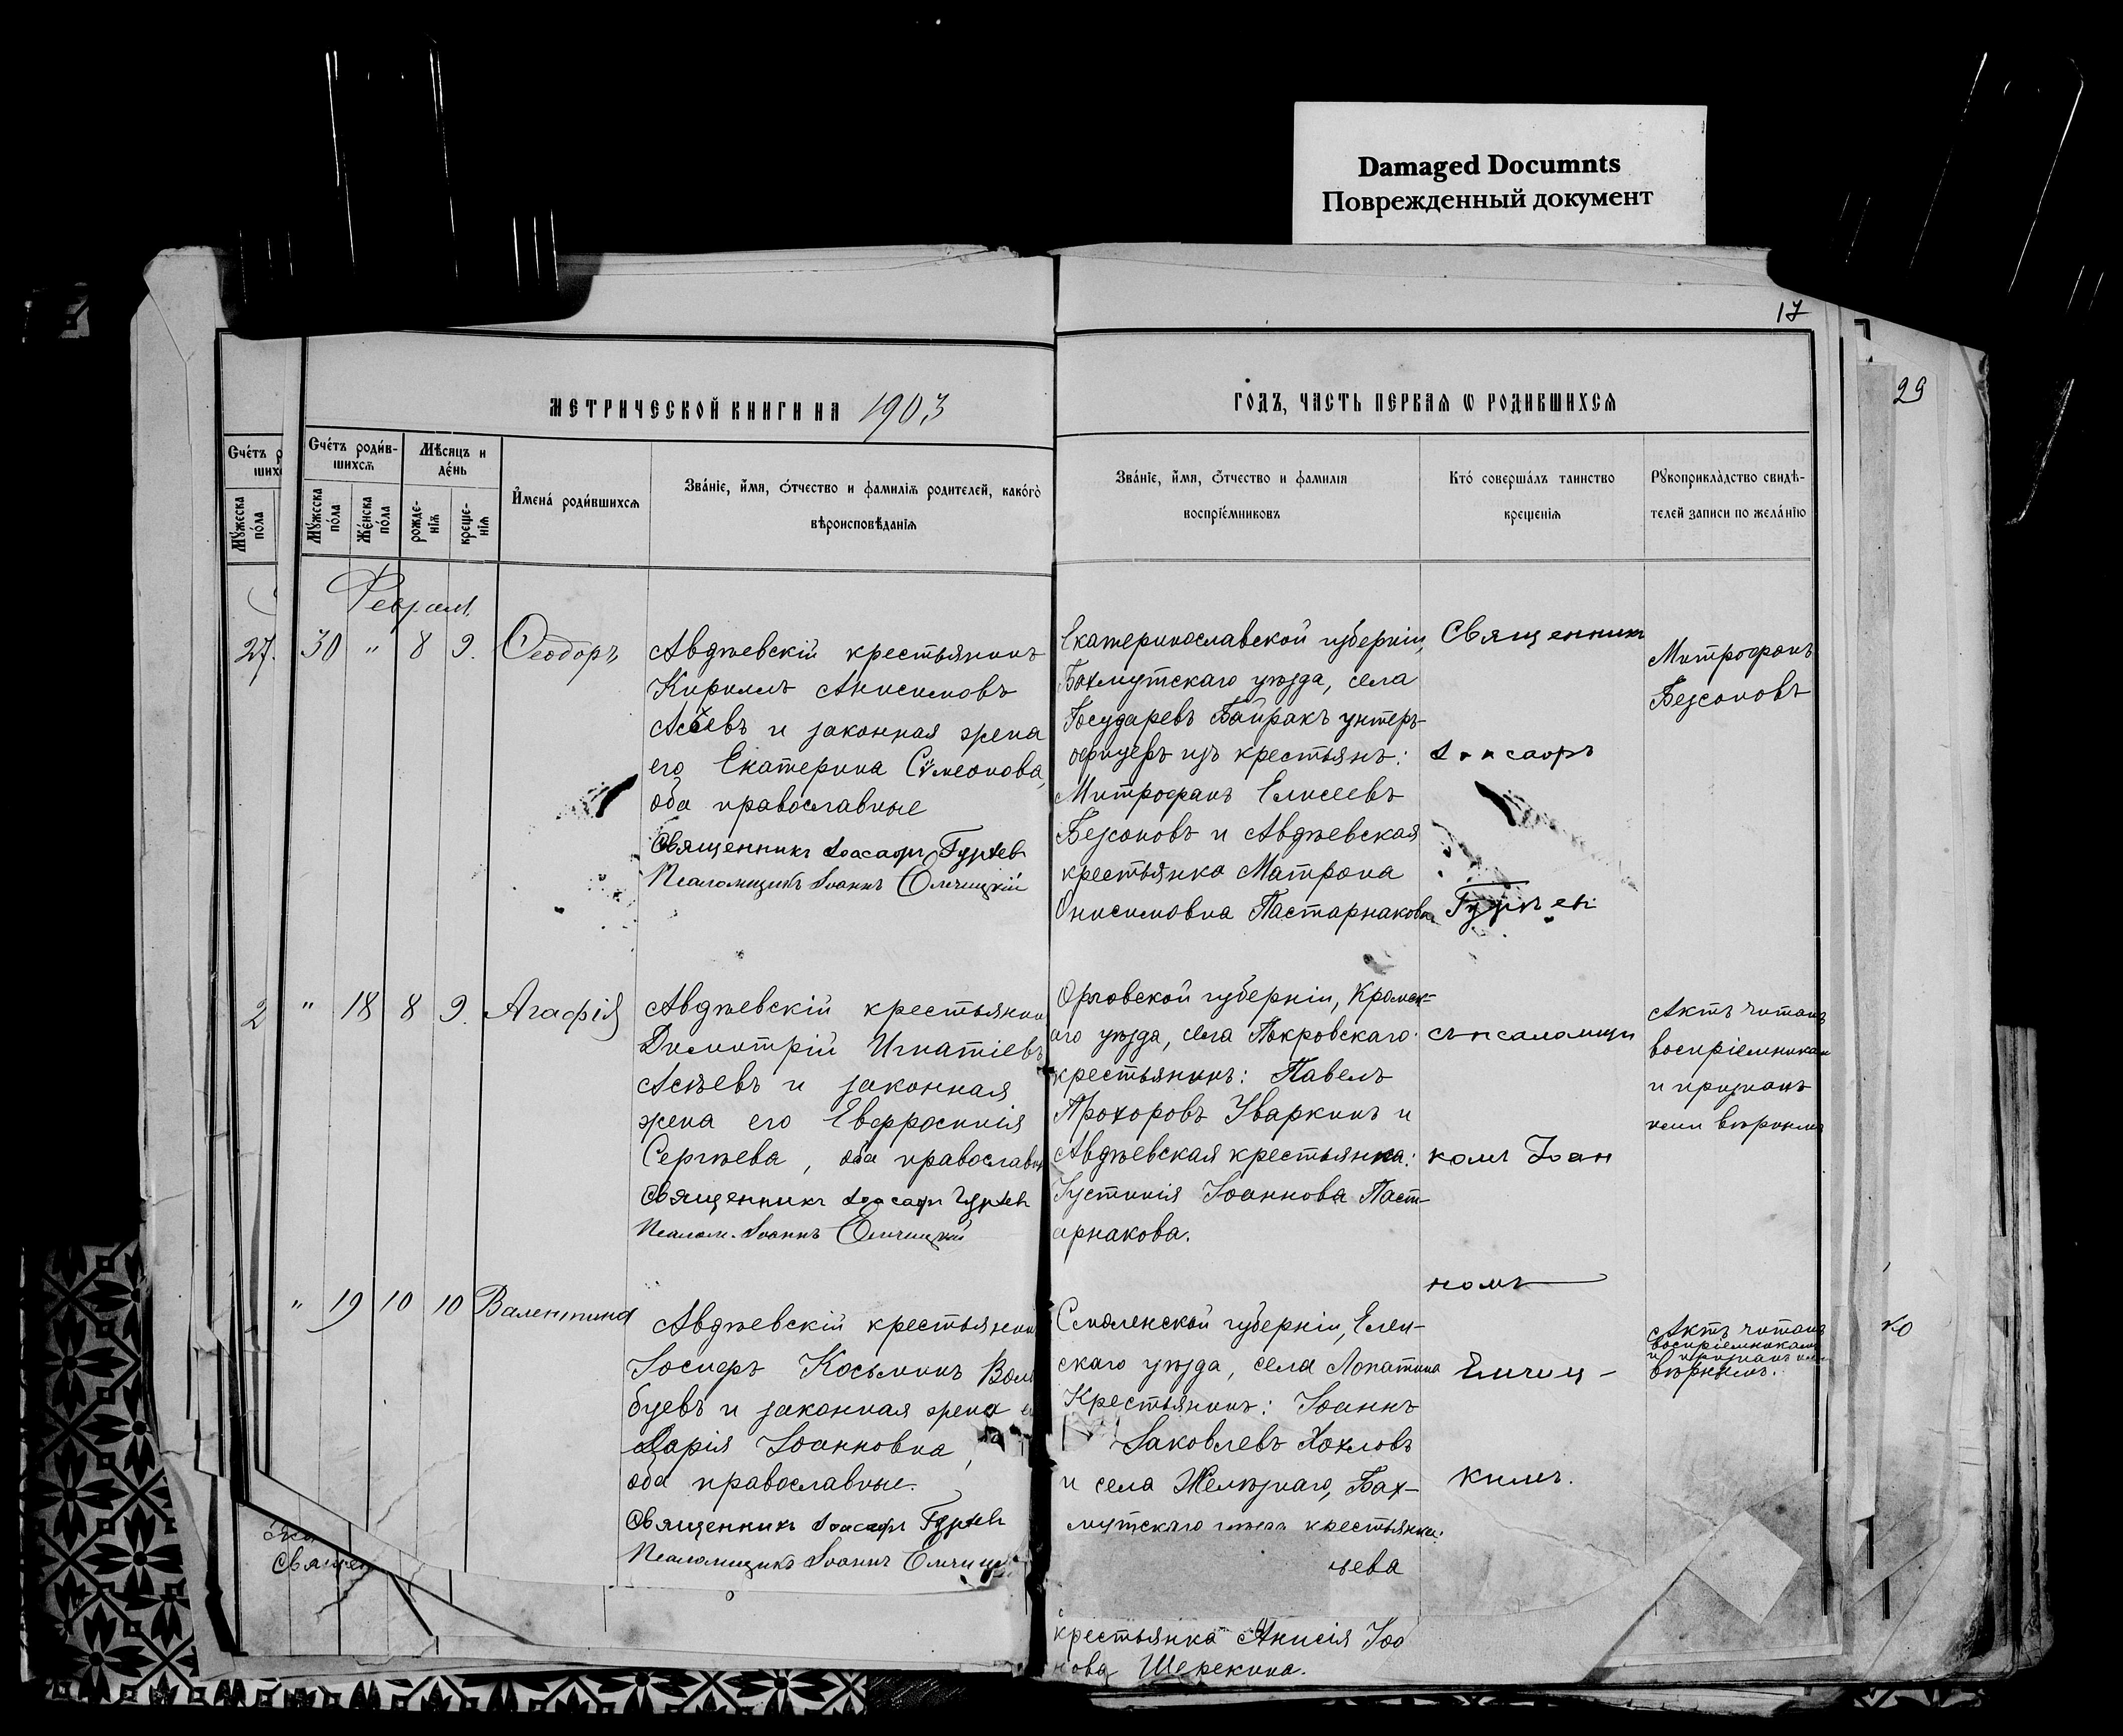 Damaged Documnts
Поврежденный документ
17
29
МЕТРИЧЕСКОЙ КНИГИ НА 1903
ГОДЪ, ЧАСТЬ ПЕРВАЯ Ѡ РОДИВШИХСЯ
Счéтъ р
шихс
Мꙋжеска
пóла
Счéтъ роди́в-
шихсѧ
Мꙋжеска
пóла
Жéнска
пóла
Мѣсяцъ и
дéнь
рожде-
нїѧ
креще-
нїѧ
И҆мена́ роди́вшихсѧ
Звáнїе, и҆́мѧ, ѻ҆́тчество и фамилїѧ родителей, какóгѡ
вѣроисповѣданїѧ
Звáнїе, и҆́мѧ, ѻ҆́тчество и фамилїѧ
воспрїéмниковъ
Ктó совершáлъ таинство
крещенїѧ
Рꙋкоприклàдство свидѣ-
телей записи по желáнїю
Февраль
27.
30 " 8 9. Ѳеодоръ
Авдѣевскій крестьянинъ
Кириллъ Анисимовъ
Асѣевъ и законная жена
его Екатерина Сѵмеонова,
оба православные
Священникъ Іоасафъ Гурьев
Псаломщикъ Іоаннъ Ельчицкій
Екатеринославской губерніи,
Бахмутскаго уѣзда, села
Государевъ Байракъ унтеръ-
офицеръ изъ крестьянъ:
Митрофанъ Елисеевъ
Безсоновъ и Авдѣевская
крестьянка Матрона
Онисимовна Пастарнакова
Священникъ
Іоасафъ
Гурьев
Митрофанъ
Безсоновъ
2
" 18 8 9. Агафія
Авдѣевскій крестьянин
Димитрій Игнатіевъ
Асѣевъ и законная
жена его Евфросинія
Сергѣева, оба православн
Священникъ Іоасафъ Гурьев
Псалом. Іоаннъ Ельчицкій
Орловской губерніи, Кромск-
аго уѣзда, села Покровскаго
крестьянинъ: Павелъ
Прохоровъ Уваркинъ и
Авдѣевская крестьянка:
Іустинія Іоаннова Паст-
арнакова.
съ псаломщи
комъ Іоан
номъ
Актъ читанъ
воспріемникам
и признанъ
ими вѣрнымъ
" 19 10 10 Валентина
Авдѣевскій крестьянин
Іосифъ Косьминъ Вол
буевъ и законная жена е
Дарія Іоанновна,
оба православные.
Священникъ Іоасафъ Гурьев
Псаломщикъ Іоаннъ Ельчиц
Смоленской губерніи, Елен-
скаго уѣзда, села Лопатина
Крестьянинъ: Іоаннъ
Іаковлевъ Хохловъ
и села Желѣзнаго, Бах-
мутскаго уѣзда крестьянка:
ьева
крестьянка Анисія Іоа
нова Шерекина.
Ельчиц-
кимъ.
Актъ читанъ
воспріемникам
и признанъ ими
вѣрнымъ.
ко
Священ